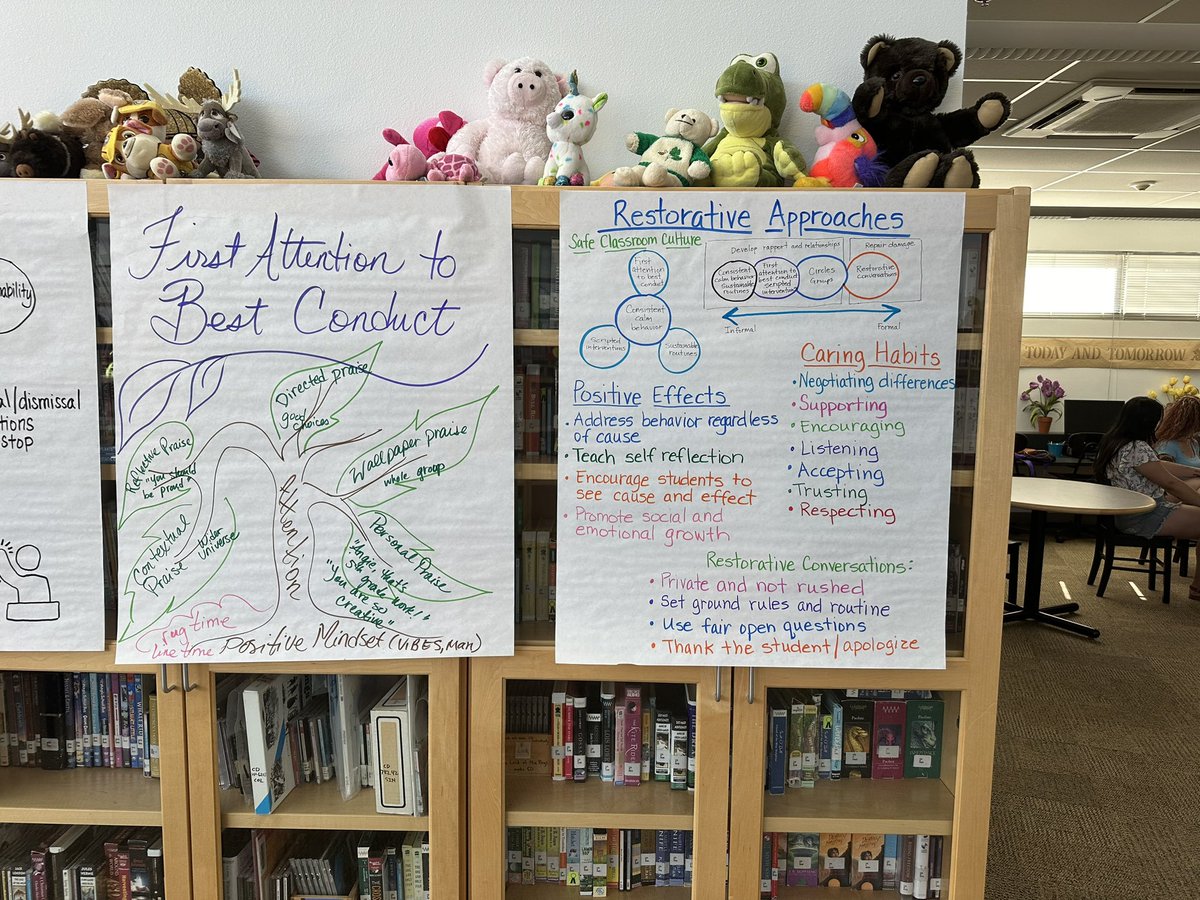 ability
al/dismissal
tions
stop
First Attention to
Best Conduct
Directed praise
good
choices
Wallpaper praise
whole group
Reflective Praise
"you should
be proud"
Contextual
Praise
wider
universe
Extension
Personal Praise
"Angie, that's
5th grade work!"
"You are so
creative"
rug time
line time
Positive Mindset (VIBES, Man)
Restorative Approaches
Safe Classroom Culture
First
attention to
best
conduct
Consistent
calm
behavior
Scripted
interventions
Sustainable
routines
Develop rapport and relationships
Repair damage
Consistent
calm behavior
Sustainable
routines
First
attention to
best conduct
scripted
interventions
Circles
Groups
Restorative
Conversations
Informal
Formal
Positive Effects
• Address behavior regardless
of cause
• Teach self reflection
• Encourage students to
see cause and effect
• Promote social and
emotional growth
Caring Habits
• Negotiating differences
• Supporting
• Encouraging
• Listening
• Accepting
• Trusting
• Respecting
Restorative Conversations:
• Private and not rushed
• Set ground rules and routine
• Use fair open questions
• Thank the student/apologize
TODAY AND TOMORROW